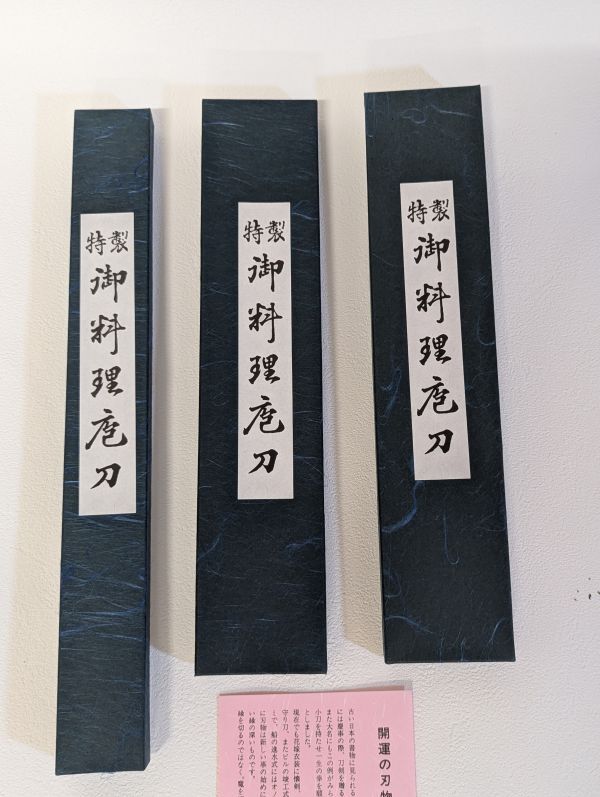 特製
御料理庖刀
特製
御料理庖刀
特製
御料理庖刀
開運の刃物
古い日本の書物に見られる
には慶事の際、刀剣を贈る
また大名にもこの例がみら
小刀を持たせ一生の幸を願
としました。
現在でも花嫁衣装に懐剣、
守り刀、またビルの竣工式
で、船の進水式にはオノ
に刃物は新しい事の始めに
い縁の深いものです。
縁を切るのではなく、魔を